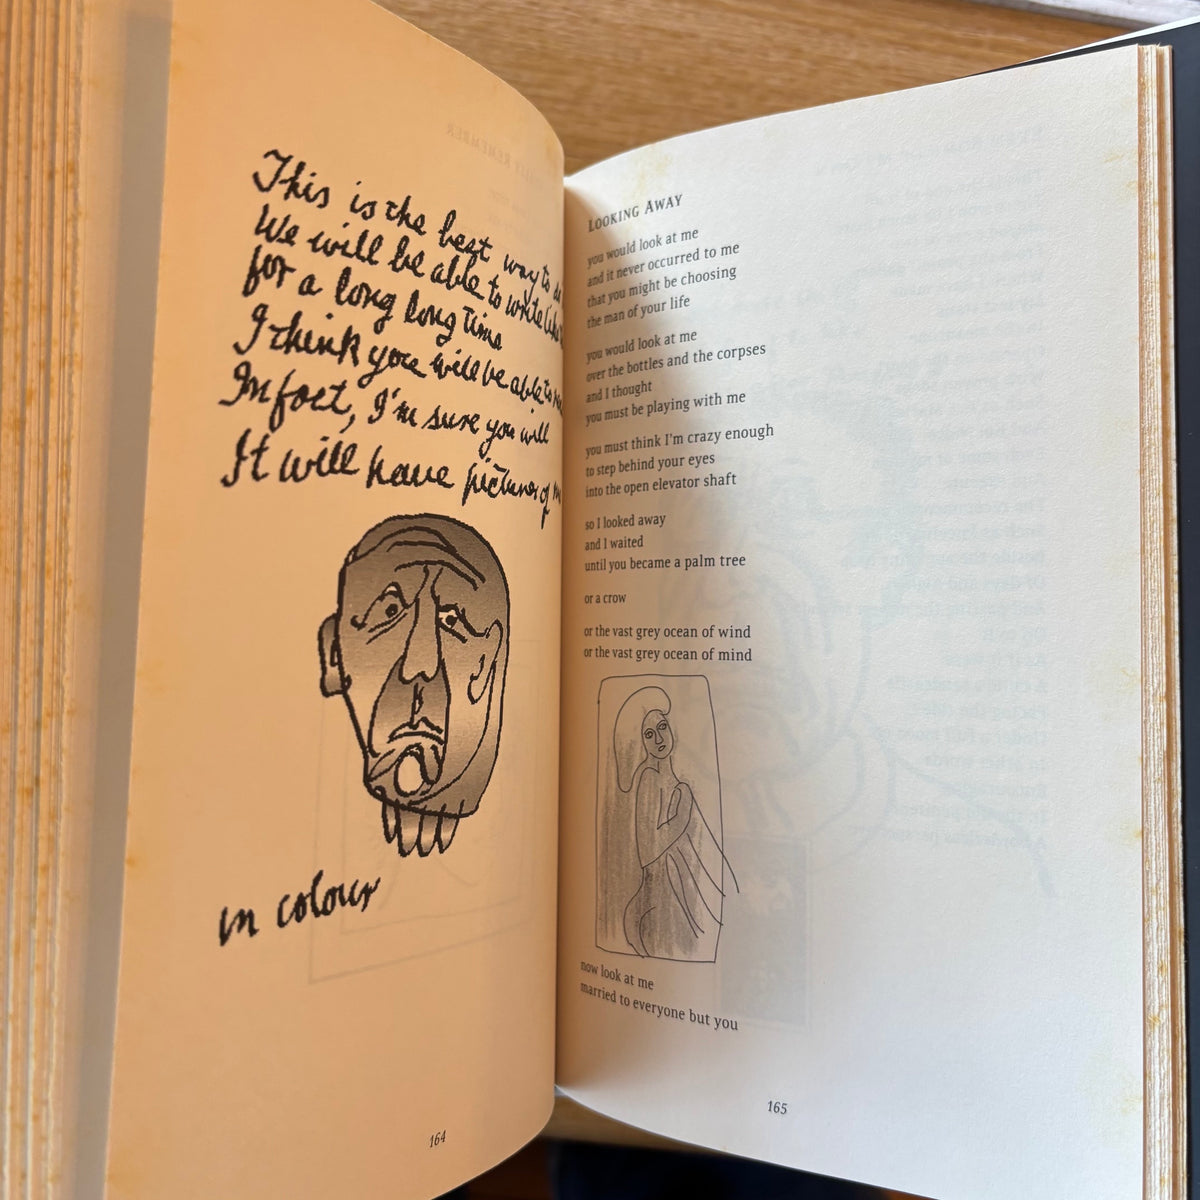 This is the best way to
We will be able to write like
for a long long time
I think you will be able to
In fact, I'm sure you will
It will have pictures of
in colour
164
LOOKING AWAY
you would look at me
and it never occurred to me
that you might be choosing
the man of your life
you would look at me
over the bottles and the corpses
and I thought
you must be playing with me
you must think I'm crazy enough
to step behind your eyes
into the open elevator shaft
so I looked away
and I waited
until you became a palm tree
or a crow
or the vast grey ocean of wind
or the vast grey ocean of mind
now look at me
married to everyone but you
165